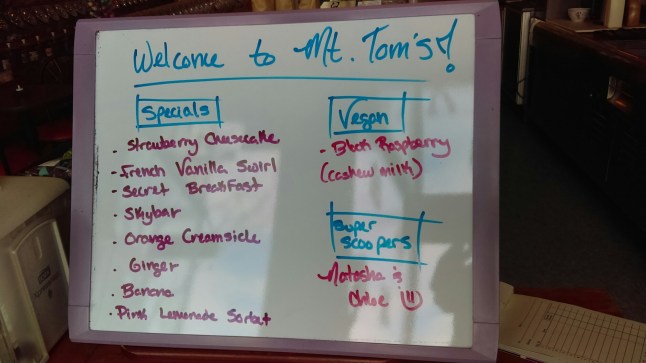 Welcome to Mt. Tom's!
Specials
- Strawberry Cheesecake
- French Vanilla Swirl
- Secret Breakfast
- Skybar
- Orange Creamsicle
- Ginger
- Banana
- Pink Lemonade Sorbet
Vegan
- Black Raspberry
(cashew milk)
Super
Scoopers
Natasha &
Chloe